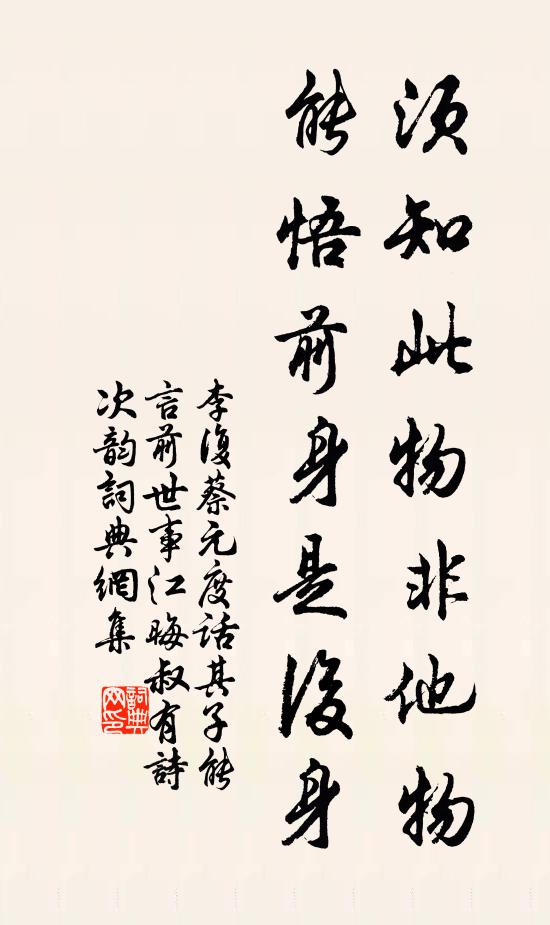 须知此物非他物
能悟前身是後身
李復蔡元度話其子能
言前世事江晦叔有詩
次韵詞典網集
詞典网印